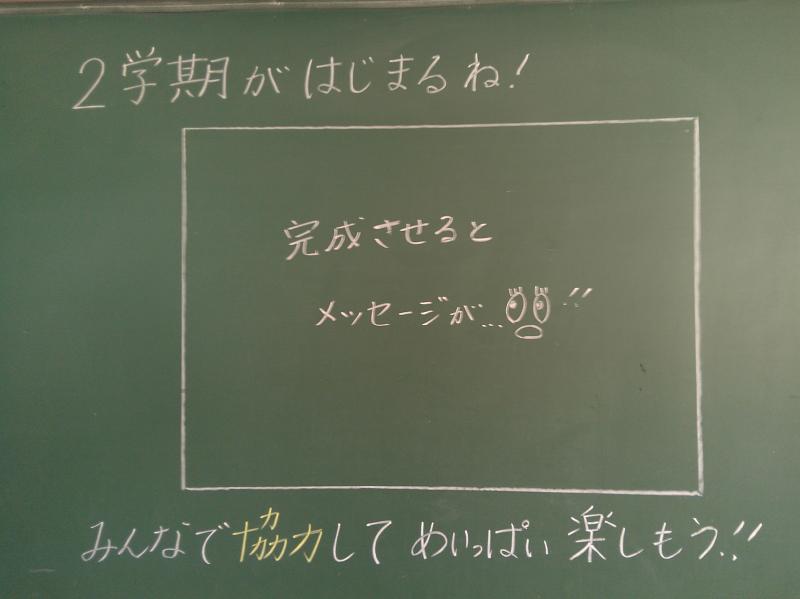 2学期がはじまるね!
完成させると
メッセージが...!!
みんなで協力してめいっぱい楽しもう!!